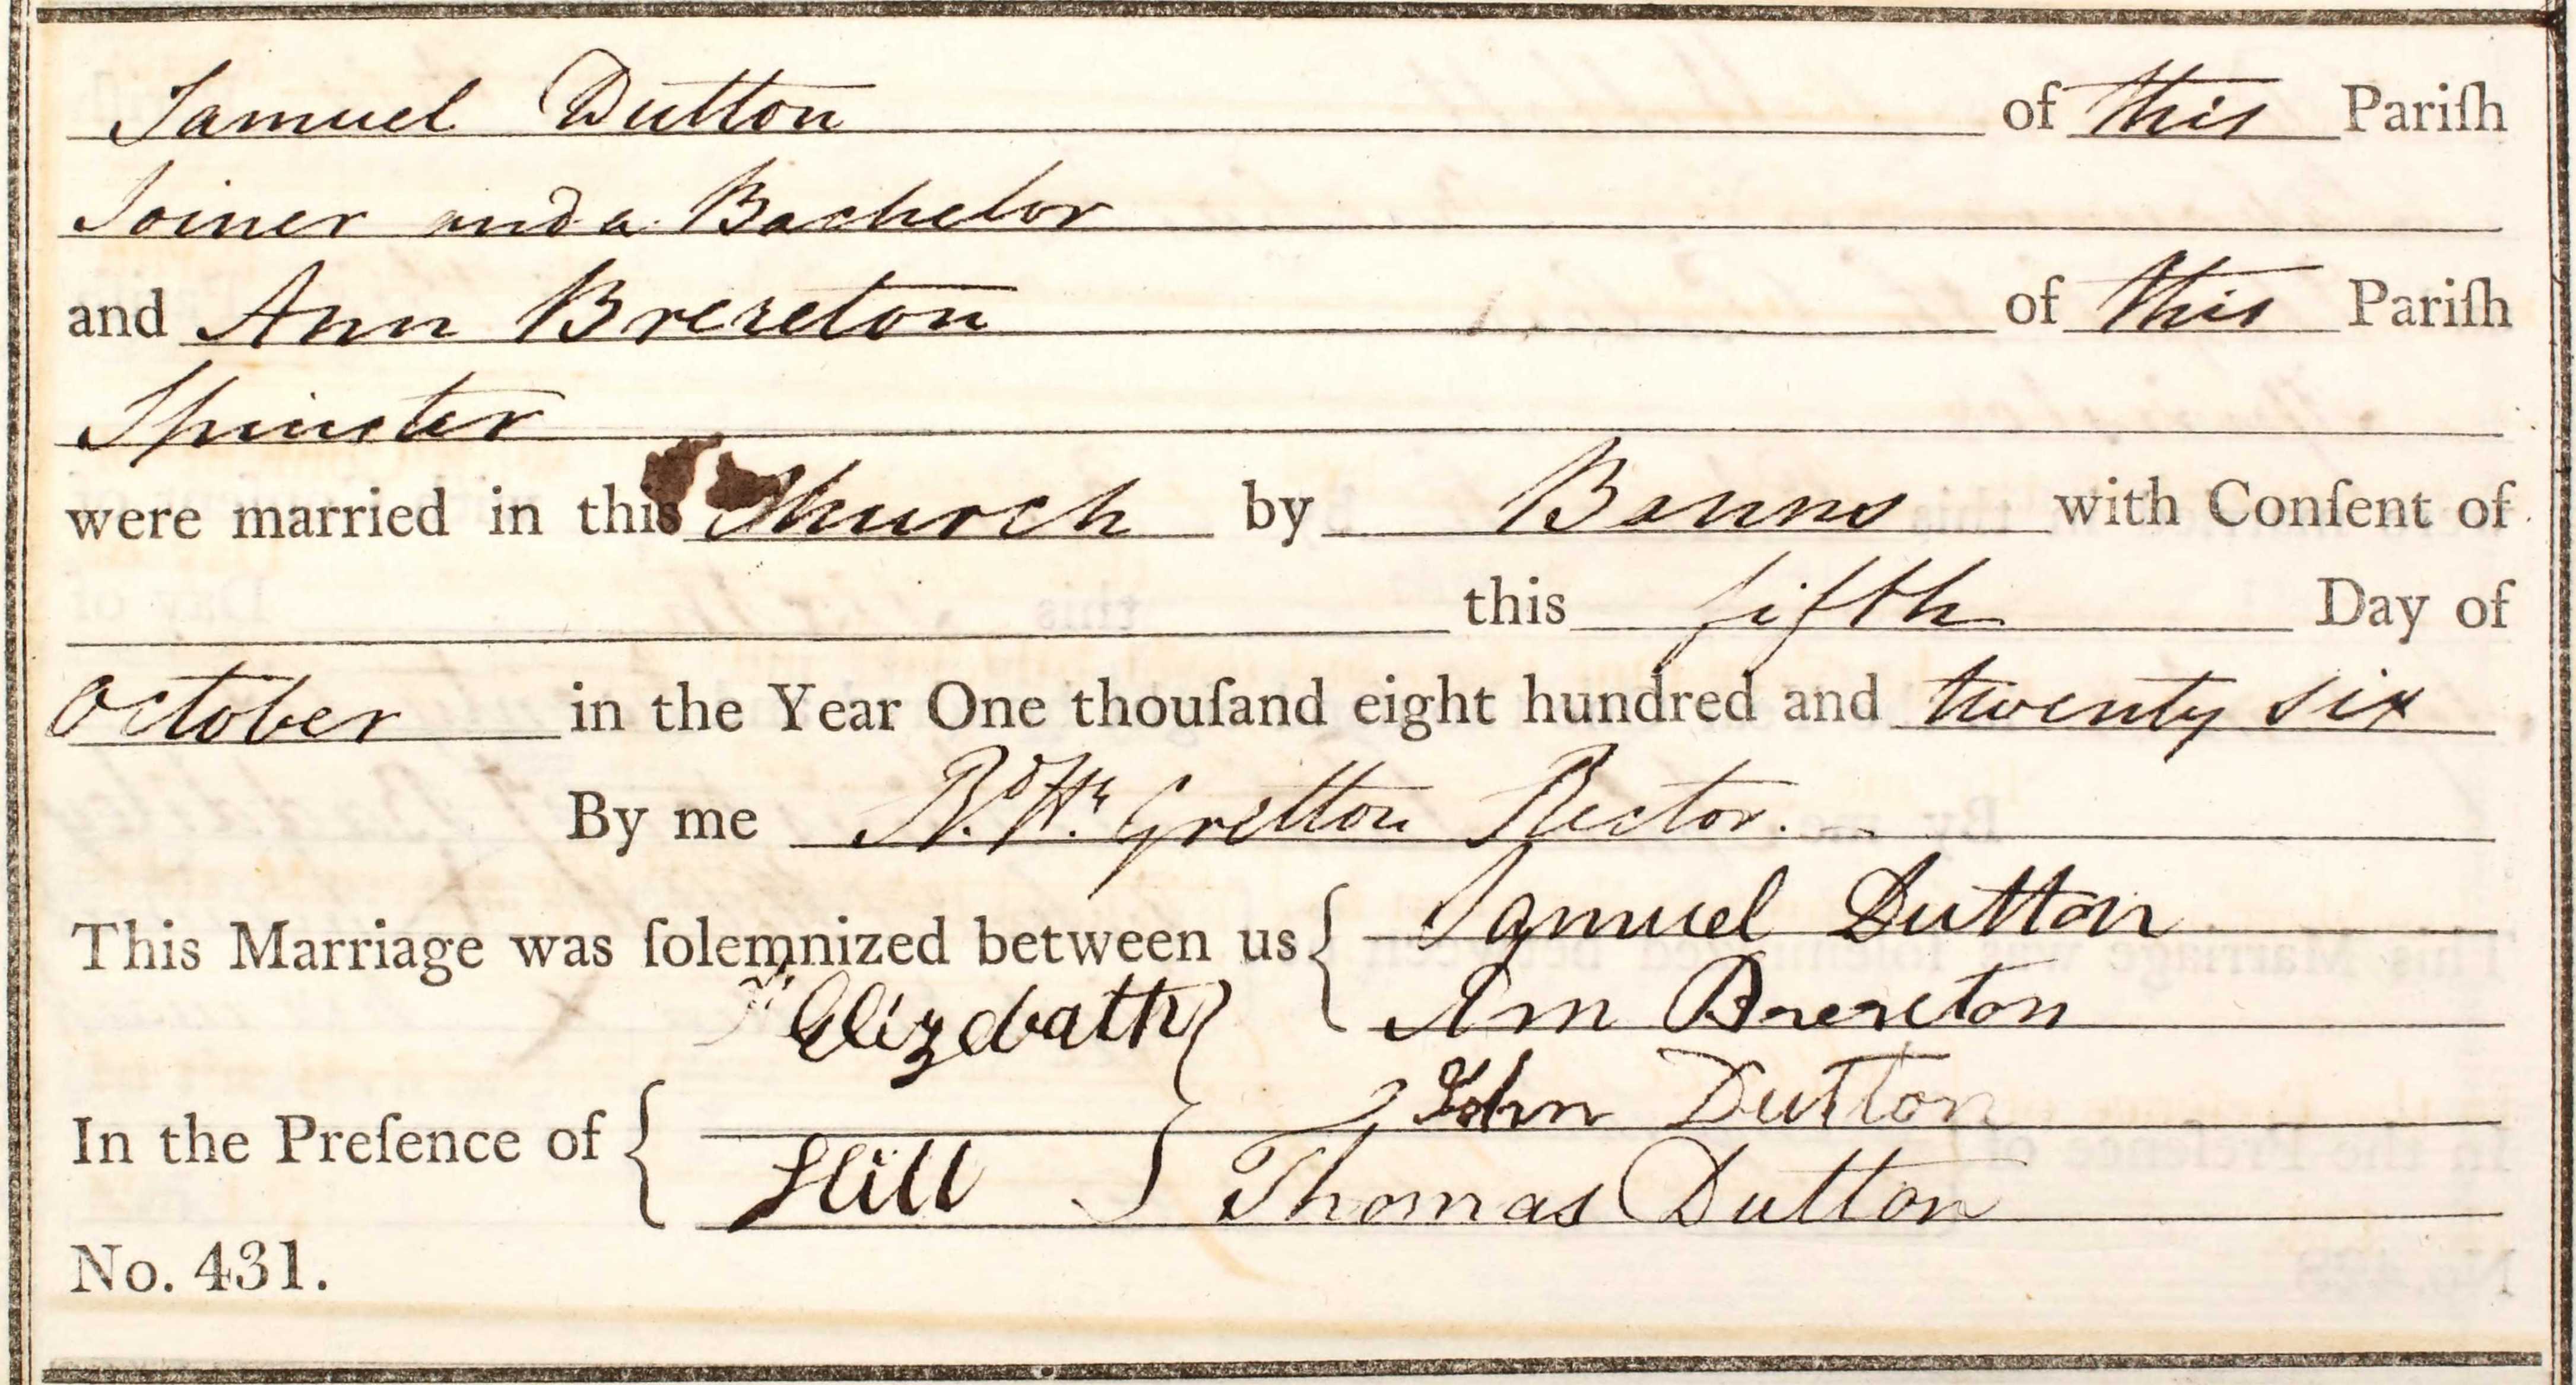 Samuel Dutton of this Pariſh
Joiner and a Bachelor
and Ann Brereton of this Pariſh
Spinster
were married in this Church by Banns with Conſent of
this fifth Day of
October in the Year One thouſand eight hundred and twenty six
By me R.d H.y Gretton Rector.
This Marriage was ſolemnized between us { Samuel Dutton
Ann Brereton
Elizebath
In the Preſence of { Hill } John Dutton
Thomas Dutton
No. 431.